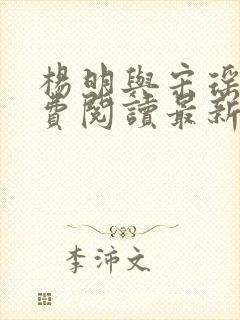 楊明與宋深
費閱讀最新
李沛文